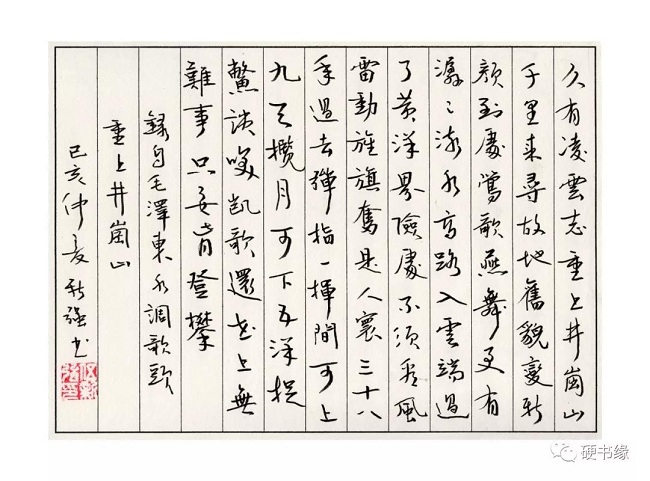 久有凌雲志重上井崗山
千里来尋故地舊貌變新
顏到處鶯歌燕舞更有
潺〻流水高路入雲端過
了黄洋界險處不須看風
雷動旌旗奮是人寰三十八
年過去彈指一揮間可上
九天攬月可下五洋捉
鱉談笑凱歌還世上無
難事只要肯登攀
錄自毛澤東水調歌頭
重上井崗山
己亥仲夏新強书
硬书缘